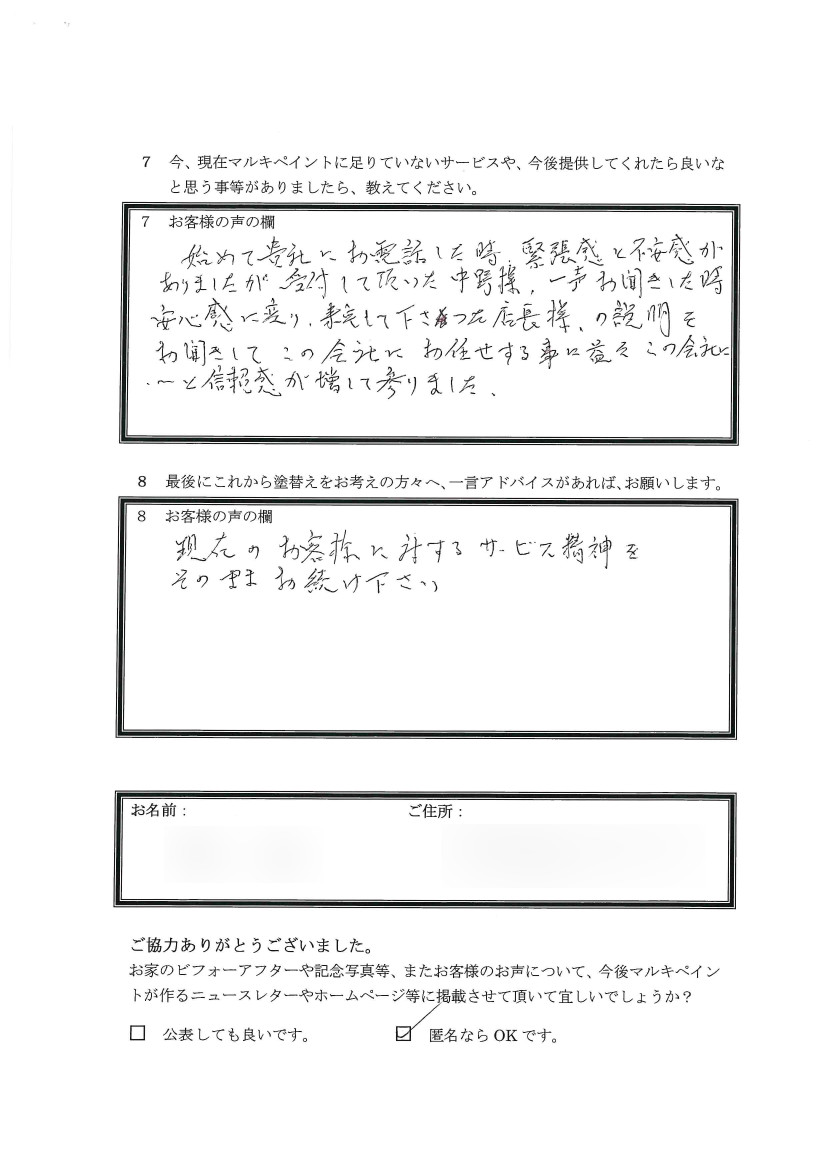 7 今、現在マルキペイントに足りていないサービスや、今後提供してくれたら良いな
と思う事等がありましたら、教えてください。
7 お客様の声の欄
始めて貴社にお電話した時、緊張感と不安感が
ありましたが 受付して頂いた中野様、一声お聞きした時
安心感に変り、来宅して下さった店長様、の説明を
お聞きして この会社に お任せする事に益々 この会社に
〜と信頼感が増して参りました、
8 最後にこれから塗替えをお考えの方々へ、一言アドバイスがあれば、お願いします。
8 お客様の声の欄
現在のお客様に対するサービス精神を
そのまま お続け下さい
お名前：
ご住所：
ご協力ありがとうございました。
お家のビフォーアフターや記念写真等、またお客様のお声について、今後マルキペイン
トが作るニュースレターやホームページ等に掲載させて頂いて宜しいでしょうか？
☐ 公表しても良いです。
☑ 匿名なら OK です。